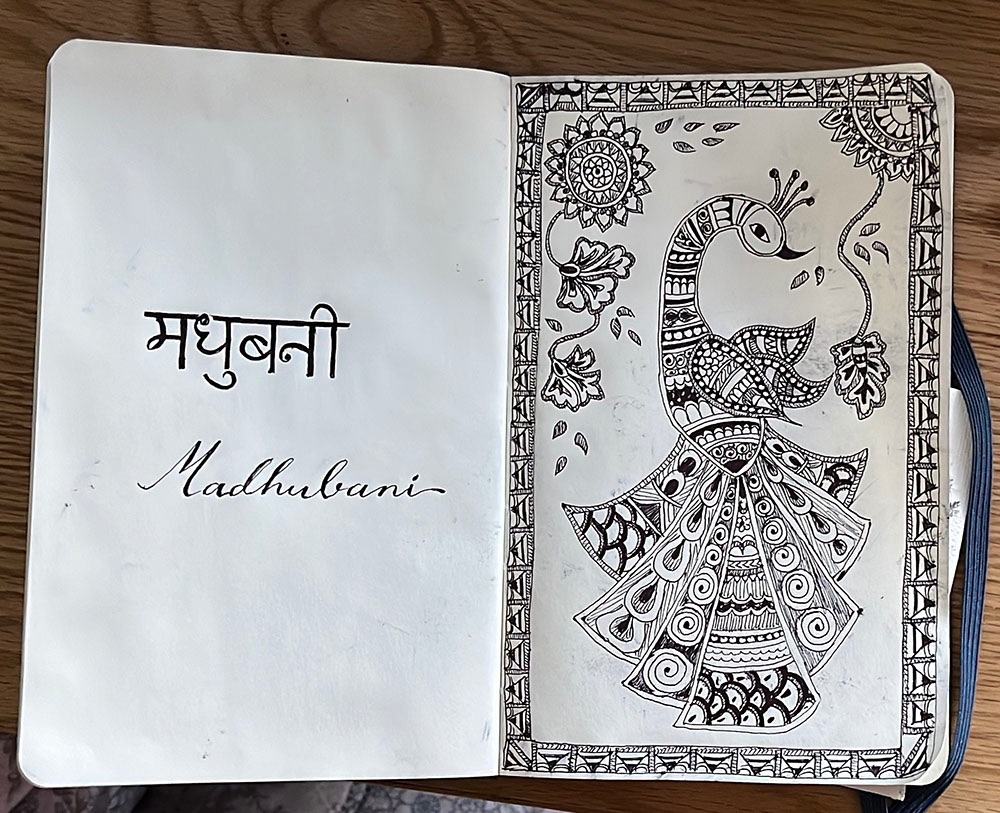 मधुबनी
Madhubani